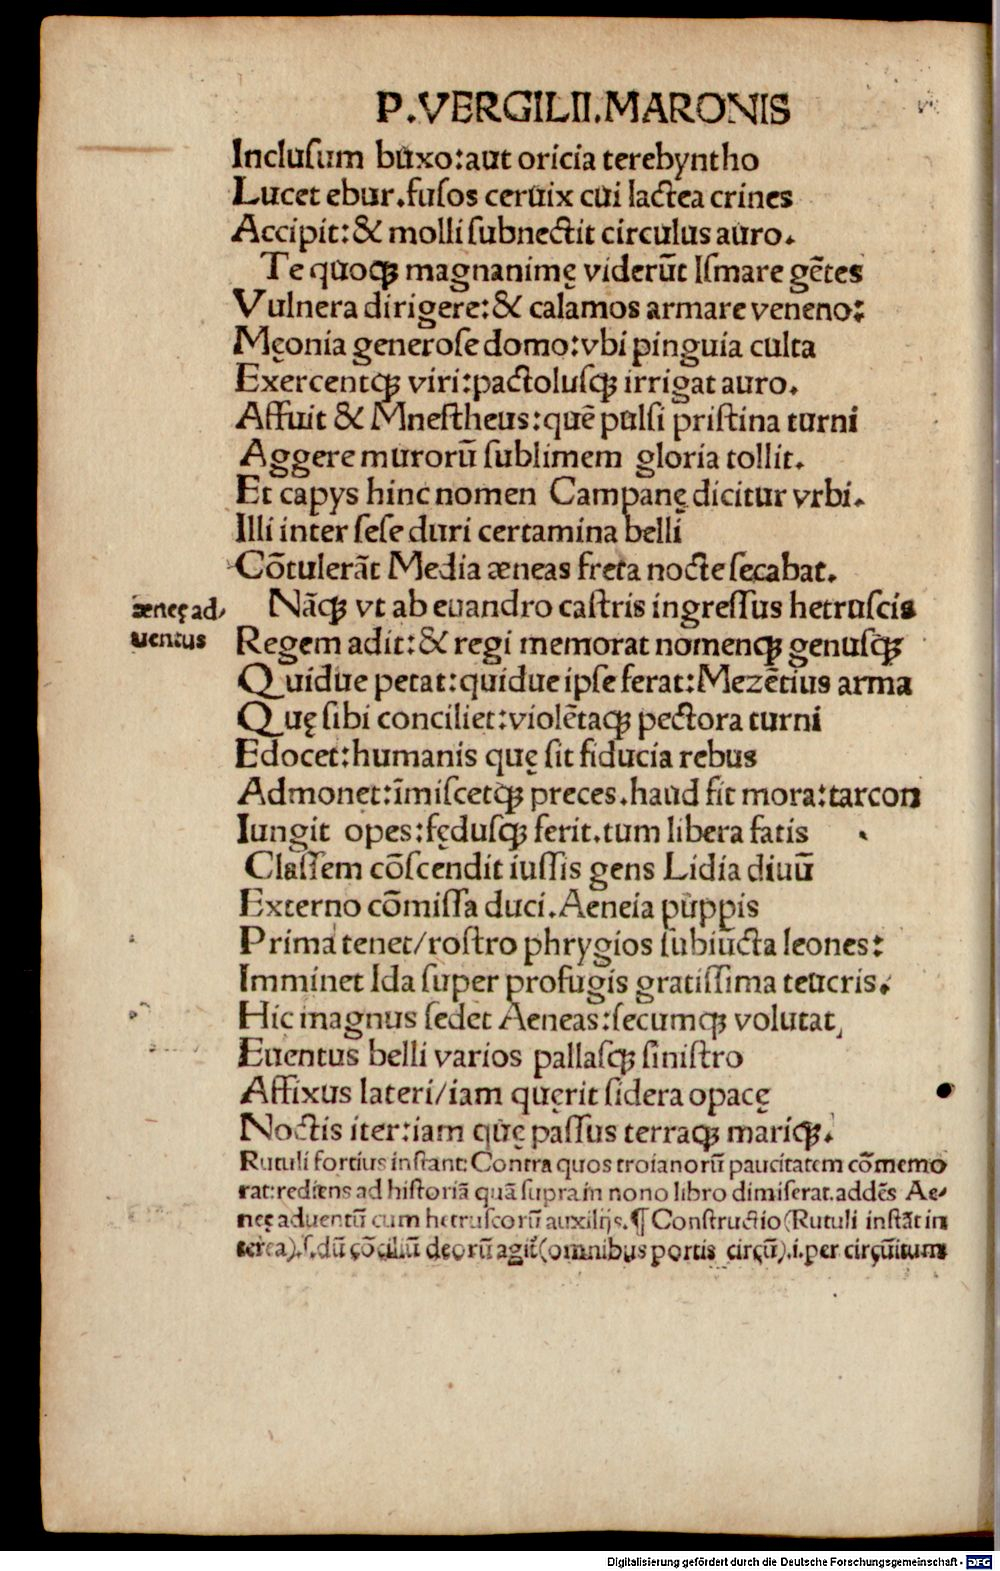 P.VERGILII.MARONIS
Inclusum buxo:aut oricia terebyntho
Lucet ebur.fusos ceruix cui lactea crines
Accipit:& molli subnectit circulus auro.
Te quoqꝫ magnanimę viderūt Ismare gētes
Vulnera dirigere:& calamos armare veneno:
Męonia generose domo:vbi pinguia culta
Exercentqꝫ viri:pactolusqꝫ irrigat auro.
Affuit & Mnestheus:quē pulsi pristina turni
Aggere murorū sublimem gloria tollit.
Et capys hinc nomen Campanę dicitur vrbi.
Illi inter sese duri certamina belli
Cōtulerāt Media æneas freta nocte secabat.
Nāqꝫ vt ab euandro castris ingressus hetruscis
æneę ad/
uentus
Regem adit:& regi memorat nomenqꝫ genusqꝫ
Quidue petat:quidue ipse ferat:Mezētius arma
Quę sibi conciliet:violētaqꝫ pectora turni
Edocet:humanis quę sit fiducia rebus
Admonet:īmiscetqꝫ preces.haud fit mora:tarcon
Iungit opes:fędusqꝫ ferit.tum libera fatis
Classem cōscendit iussis gens Lidia diuū
Externo cōmissa duci.Aeneia puppis
Prima tenet/rostro phrygios subiūcta leones:
Imminet Ida super profugis gratissima teucris.
Hic magnus sedet Aeneas:secumqꝫ volutat
Euentus belli varios pallasqꝫ sinistro
Affixus lateri/iam quęrit sidera opacę
Noctis iter:iam quę passus terraqꝫ mariqꝫ.
Rutuli fortius instant:Contra quos troianorū paucitatem cōmemo
rat:rediens ad historiā quā supra in nono libro dimiserat.addēs Ae/
neę aduentū cum hetruscorū auxilijs.¶ Constructio(Rutuli instāt in
terea).s.dū cōciliū deorū agit̄(omnibus portis circū).i.per circūitum
Digitalisierung gefördert durch die Deutsche Forschungsgemeinschaft - DFG